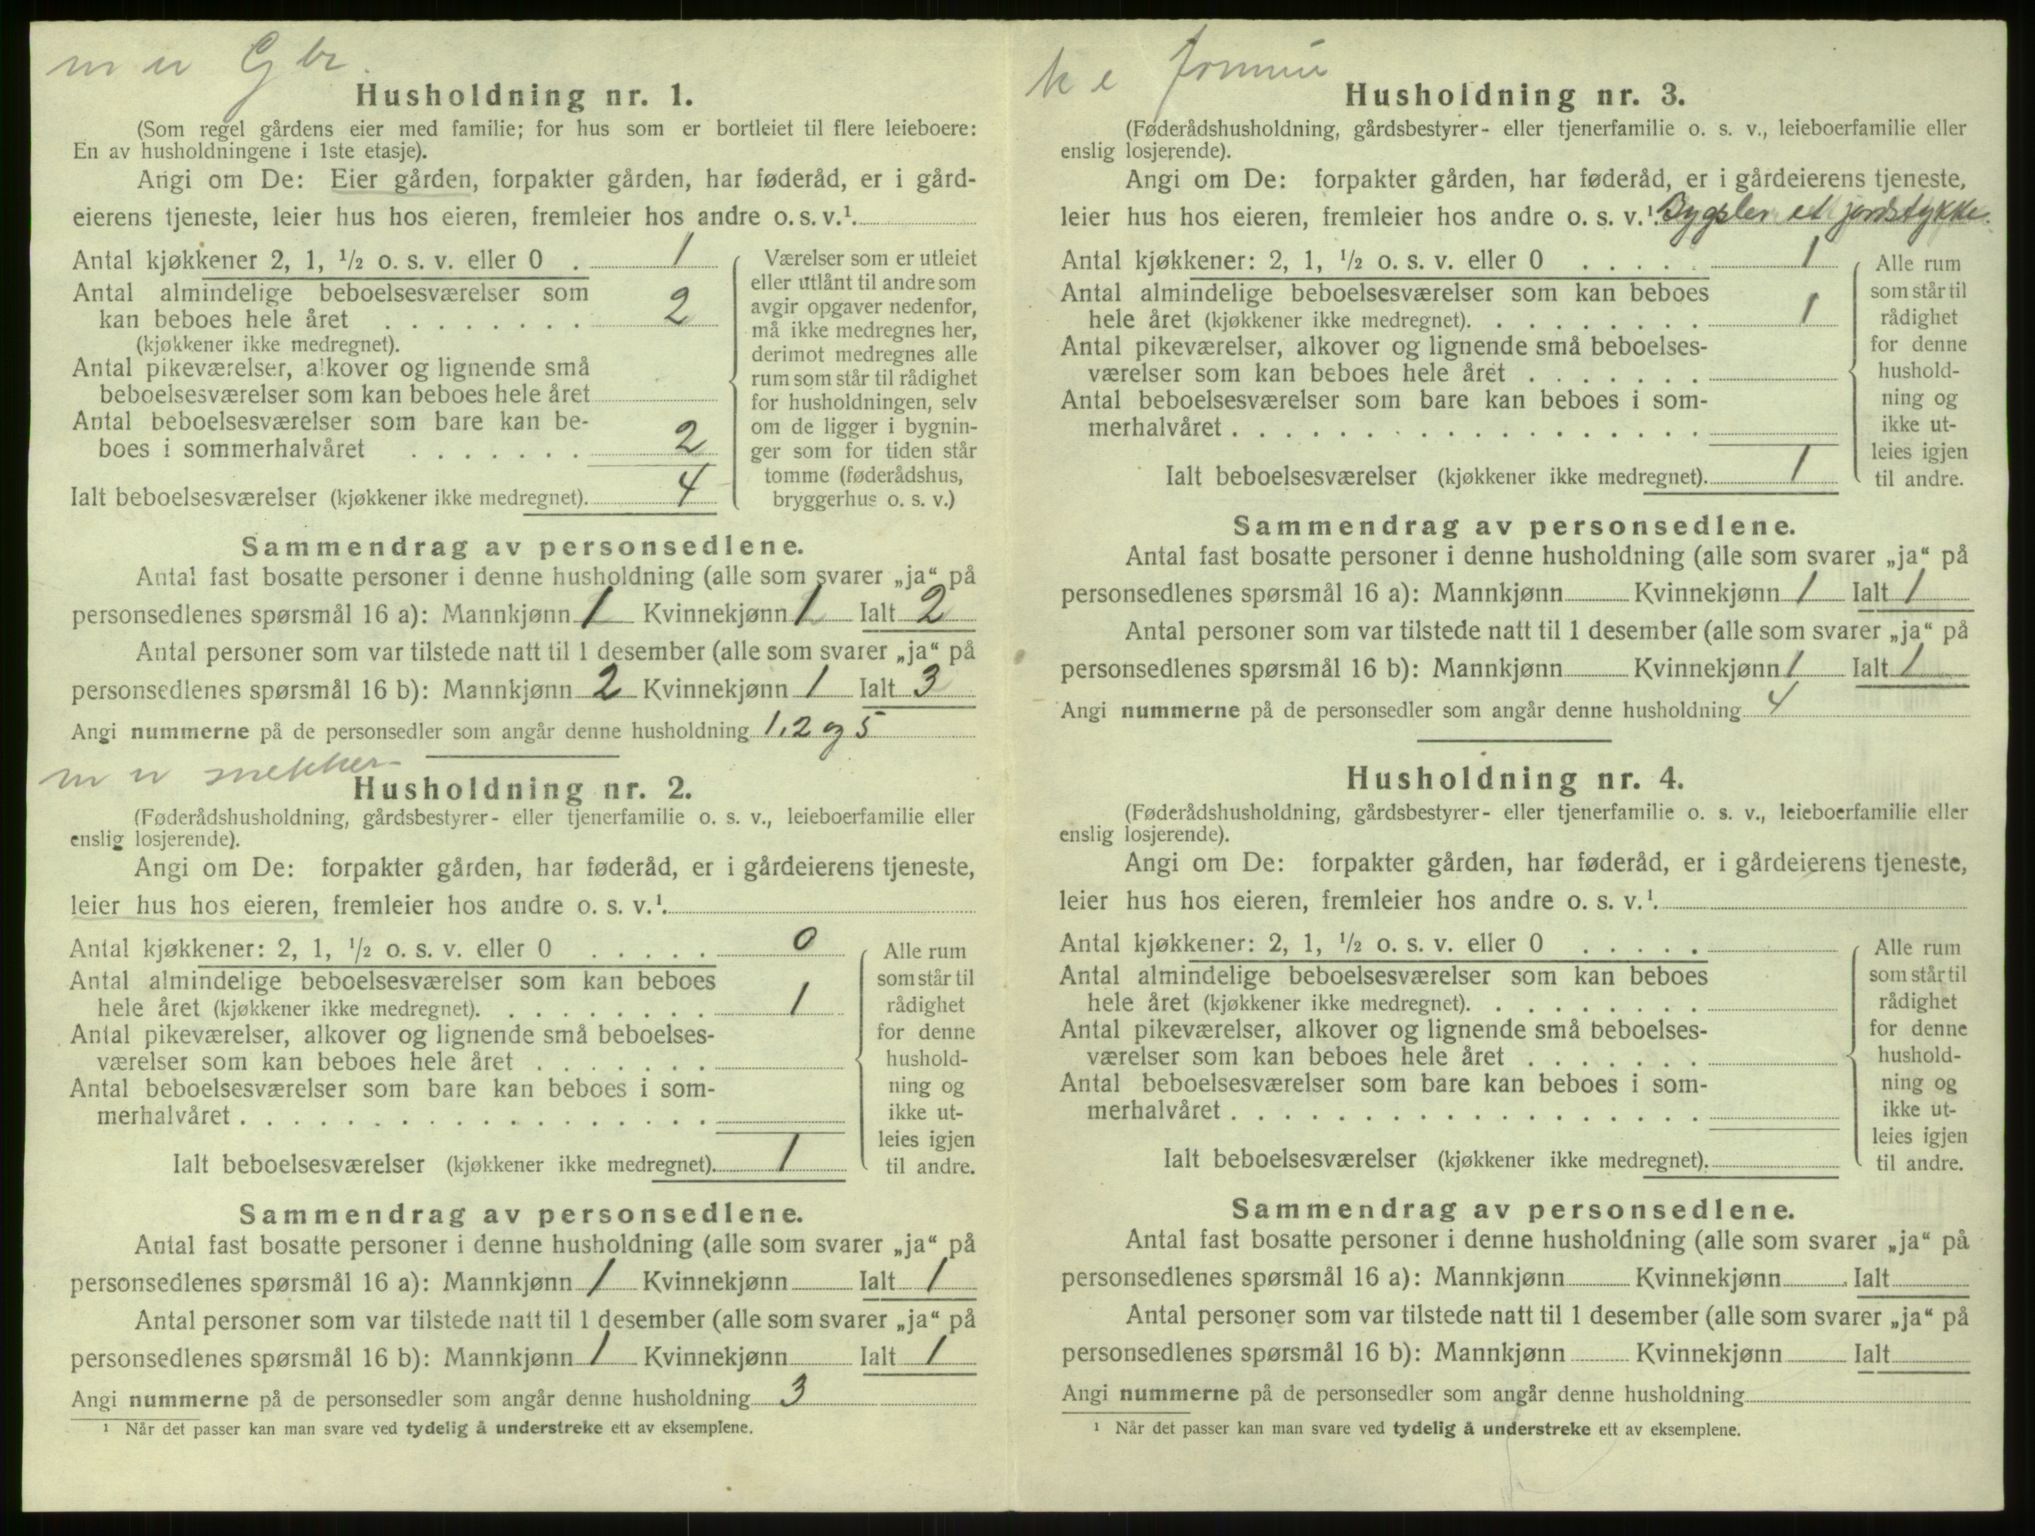 m u Gbr.
Husholdning nr. 1.
(Som regel gårdens eier med familie; for hus som er bortleiet til flere leieboere:
En av husholdningene i 1ste etasje).
Angi om De: Eier gården, forpakter gården, har føderåd, er i gård-
eierens tjeneste, leier hus hos eieren, fremleier hos andre o. s. v.¹
Antal kjøkkener 2, 1, ½ o. s. v. eller 0 . 1
Antal almindelige beboelsesværelser som
kan beboes hele året . . . . . . . . 2
(kjøkkener ikke medregnet).
Antal pikeværelser, alkover og lignende små
beboelsesværelser som kan beboes hele året
Antal beboelsesværelser som bare kan be-
boes i sommerhalvåret . . . . . . . 2
Ialt beboelsesværelser (kjøkkener ikke medregnet). 4
Værelser som er utleiet
eller utlånt til andre som
avgir opgaver nedenfor,
må ikke medregnes her,
derimot medregnes alle
rum som står til rådighet
for husholdningen, selv
om de ligger i bygnin-
ger som for tiden står
tomme (føderådshus,
bryggerhus o. s. v.)
Sammendrag av personsedlene.
Antal fast bosatte personer i denne husholdning (alle som svarer „ja“ på
personsedlenes spørsmål 16 a): Mannkjønn 1 Kvinnekjønn 1 Ialt 2
Antal personer som var tilstede natt til 1 desember (alle som svarer „ja“ på
personsedlenes spørsmål 16 b): Mannkjønn 2 Kvinnekjønn 1 Ialt 3
Angi nummerne på de personsedler som angår denne husholdning 1, 2 og 5
m u snekker
Husholdning nr. 2.
(Føderådshusholdning, gårdsbestyrer- eller tjenerfamilie o. s. v., leieboerfamilie eller
enslig losjerende).
Angi om De: forpakter gården, har føderåd, er i gårdeierens tjeneste,
leier hus hos eieren, fremleier hos andre o. s. v.¹
Antal kjøkkener: 2, 1, ½ o. s. v. eller 0 . . . . . 0
Antal almindelige beboelsesværelser som kan beboes
hele året (kjøkkener ikke medregnet). . . . . . . . . 1
Antal pikeværelser, alkover og lignende små beboelses-
værelser som kan beboes hele året . . . . . . .
Antal beboelsesværelser som bare kan beboes i som-
merhalvåret . . . . . . . . . . . . . . . . . .
Ialt beboelsesværelser (kjøkkener ikke medregnet). 1
Alle rum
som står til
rådighet
for denne
hushold-
ning og
ikke ut-
leies igjen
til andre.
Sammendrag av personsedlene.
Antal fast bosatte personer i denne husholdning (alle som svarer „ja“ på
personsedlenes spørsmål 16 a): Mannkjønn 1 Kvinnekjønn Ialt 1
Antal personer som var tilstede natt til 1 desember (alle som svarer „ja“ på
personsedlenes spørsmål 16 b): Mannkjønn 1 Kvinnekjønn Ialt 1
Angi nummerne på de personsedler som angår denne husholdning 3
¹ Når det passer kan man svare ved tydelig å understreke ett av eksemplene.
k e
Husholdning nr. 3.
(Føderådshusholdning, gårdsbestyrer- eller tjenerfamilie o. s. v., leieboerfamilie eller
enslig losjerende).
Angi om De: forpakter gården, har føderåd, er i gårdeierens tjeneste,
leier hus hos eieren, fremleier hos andre o. s. v.¹ Bygsler et jordstykke.
Antal kjøkkener: 2, 1, ½ o. s. v. eller 0 . . . . . 1
Antal almindelige beboelsesværelser som kan beboes
hele året (kjøkkener ikke medregnet). . . . . . . . . 1
Antal pikeværelser, alkover og lignende små beboelses-
værelser som kan beboes hele året . . . . . . .
Antal beboelsesværelser som bare kan beboes i som-
merhalvåret . . . . . . . . . . . . . . . . . .
Ialt beboelsesværelser (kjøkkener ikke medregnet). 1
Alle rum
som står til
rådighet
for denne
hushold-
ning og
ikke ut-
leies igjen
til andre.
Sammendrag av personsedlene.
Antal fast bosatte personer i denne husholdning (alle som svarer „ja“ på
personsedlenes spørsmål 16 a): Mannkjønn Kvinnekjønn 1 Ialt 1
Antal personer som var tilstede natt til 1 desember (alle som svarer „ja“ på
personsedlenes spørsmål 16 b): Mannkjønn Kvinnekjønn 1 Ialt 1
Angi nummerne på de personsedler som angår denne husholdning 4
Husholdning nr. 4.
(Føderådshusholdning, gårdsbestyrer- eller tjenerfamilie o. s. v., leieboerfamilie eller
enslig losjerende).
Angi om De: forpakter gården, har føderåd, er i gårdeierens tjeneste,
leier hus hos eieren, fremleier hos andre o. s. v.¹
Antal kjøkkener: 2, 1, ½ o. s. v. eller 0 . . . . .
Antal almindelige beboelsesværelser som kan beboes
hele året (kjøkkener ikke medregnet). . . . . . . . .
Antal pikeværelser, alkover og lignende små beboelses-
værelser som kan beboes hele året . . . . . . .
Antal beboelsesværelser som bare kan beboes i som-
merhalvåret . . . . . . . . . . . . . . . . . .
Ialt beboelsesværelser (kjøkkener ikke medregnet).
Alle rum
som står til
rådighet
for denne
hushold-
ning og
ikke ut-
leies igjen
til andre.
Sammendrag av personsedlene.
Antal fast bosatte personer i denne husholdning (alle som svarer „ja“ på
personsedlenes spørsmål 16 a): Mannkjønn Kvinnekjønn Ialt
Antal personer som var tilstede natt til 1 desember (alle som svarer „ja“ på
personsedlenes spørsmål 16 b): Mannkjønn Kvinnekjønn Ialt
Angi nummerne på de personsedler som angår denne husholdning
¹ Når det passer kan man svare ved tydelig å understreke ett av eksemplene.